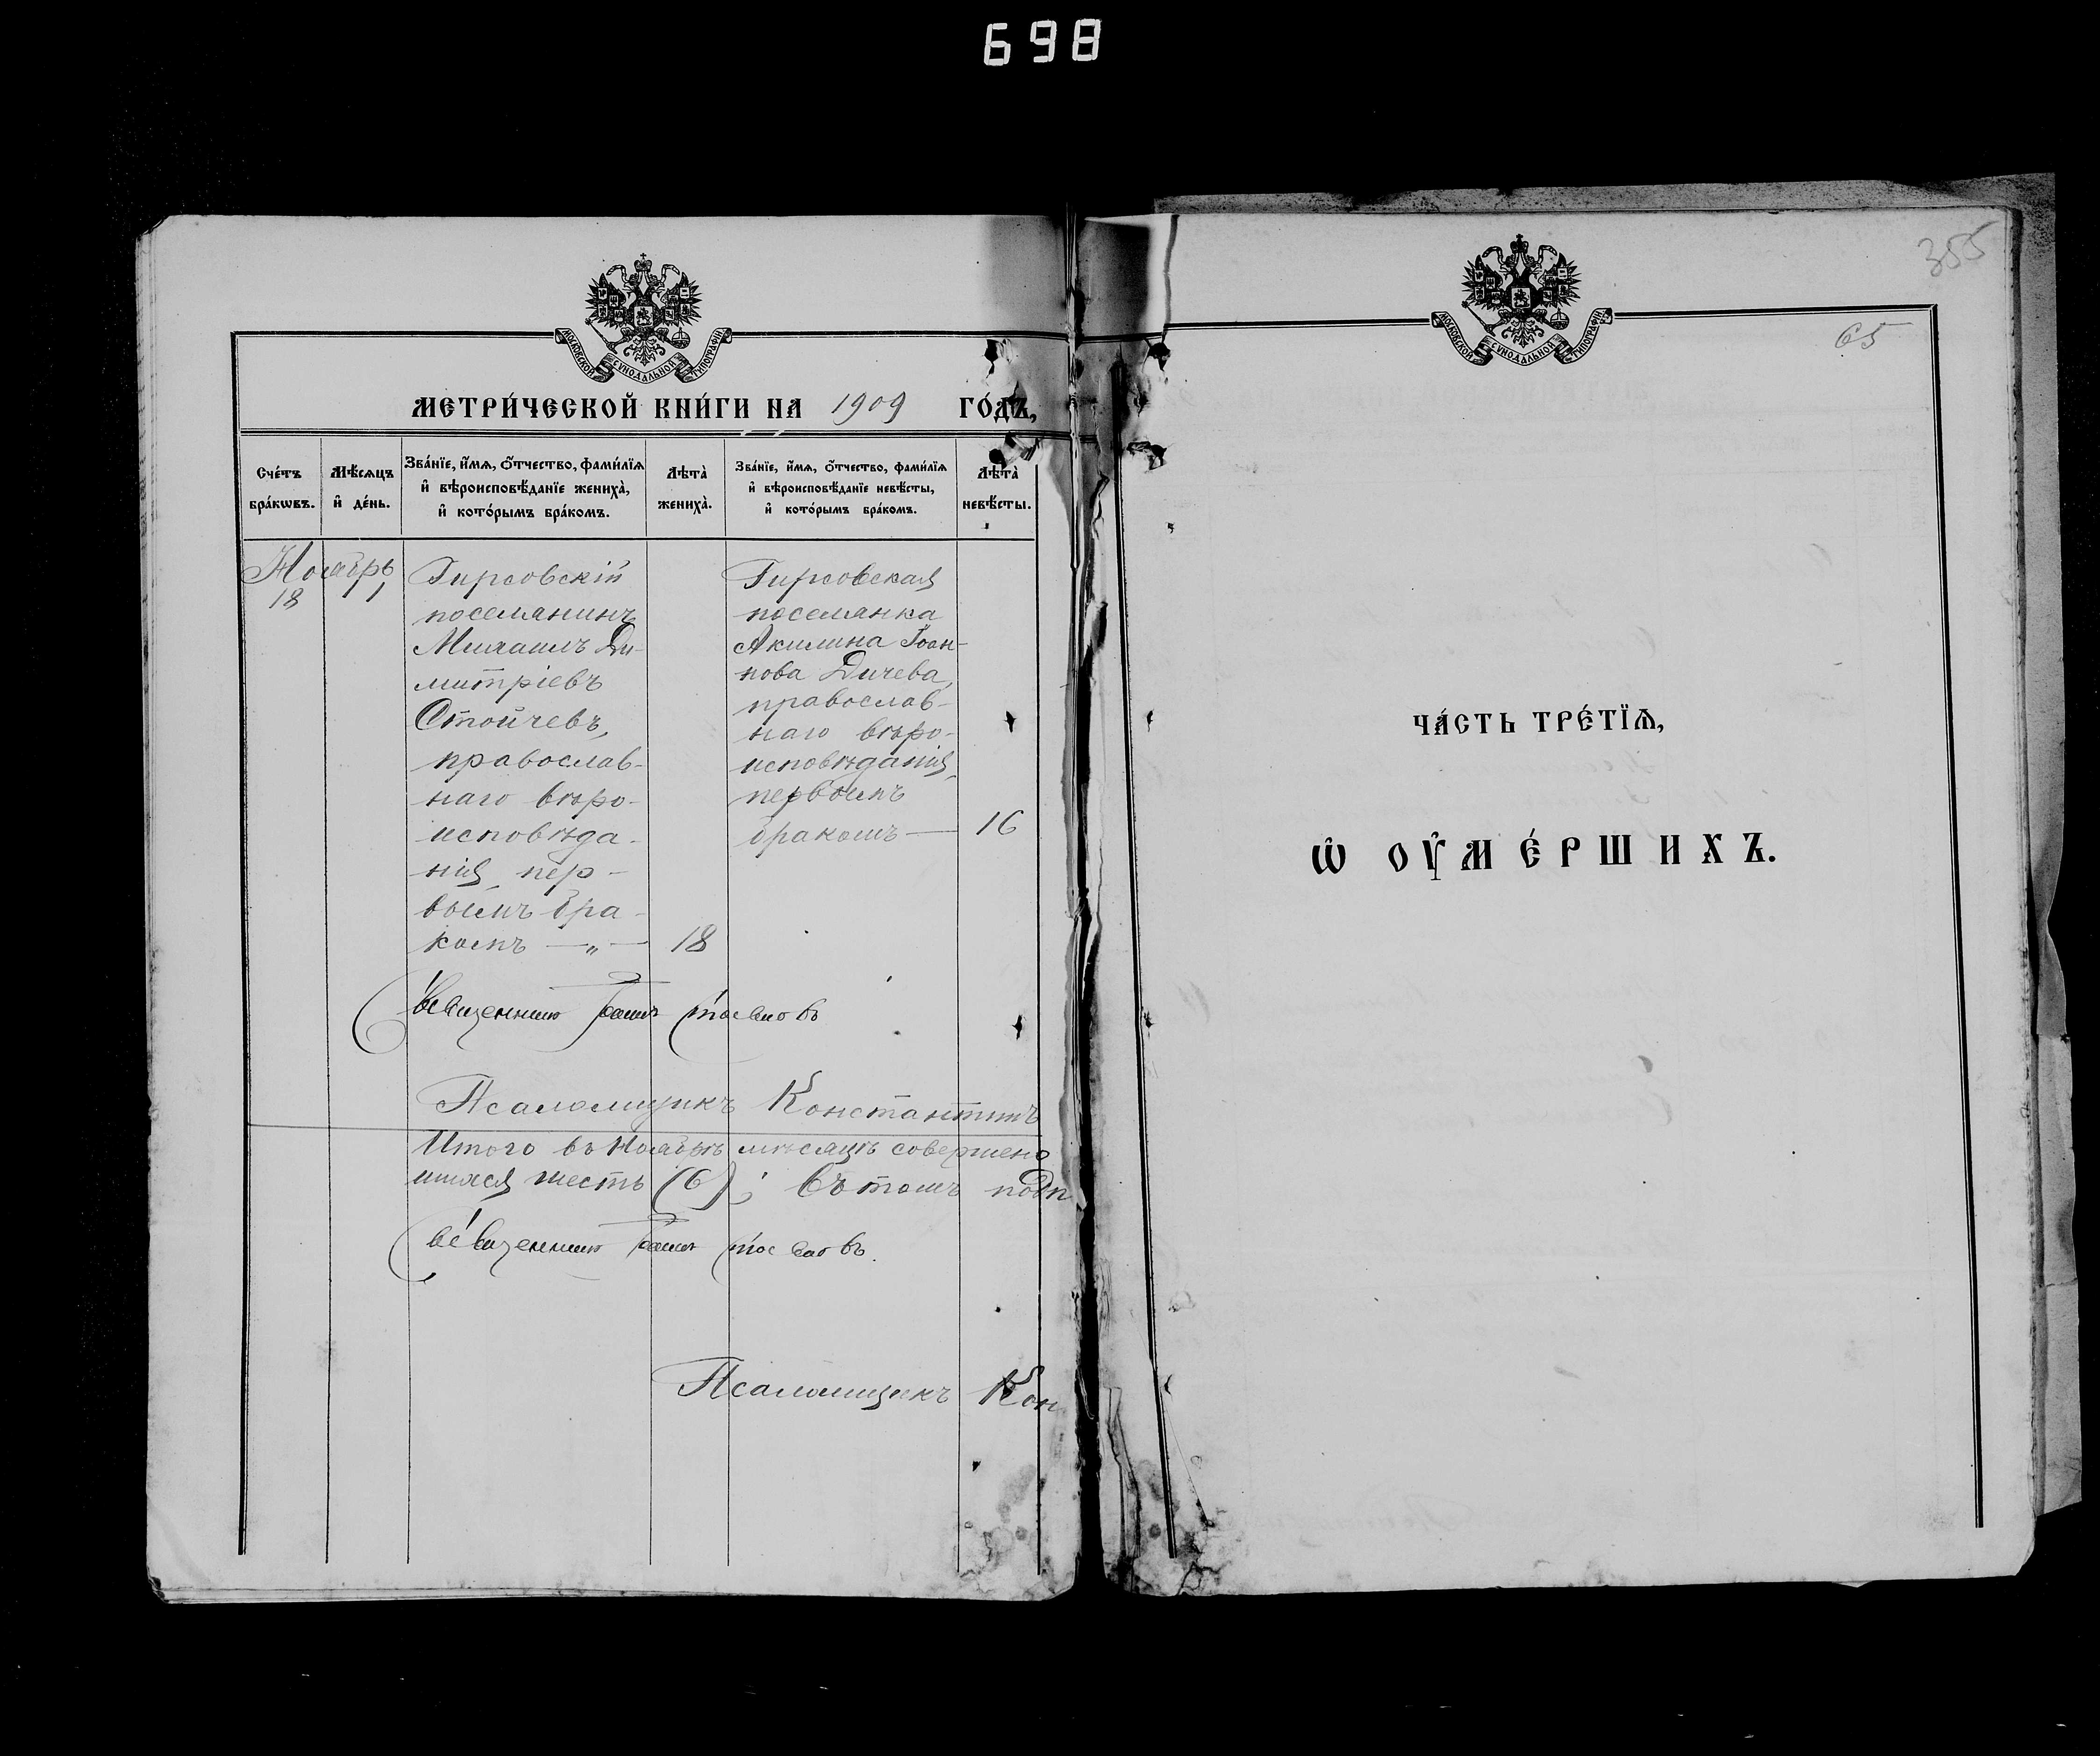 698
МОСКОВСКОЙ СУНОДАЛЬНОЙ ТИПОГРАФІИ
МЕТРИ́ЧЕСКОЙ КНИ́ГИ НА 1909 ГО́ДЪ,
Сче́тъ бра́кѡвъ.
Мѣ́сяцъ и҆ де́нь.
Зва́нїе, и҆́мѧ, ѻ҆́тчество, фами́лїѧ
и҆ вѣроисповѣ́данїе жениха̀,
и҆ кото́рымъ бра́комъ.
Лѣта̀ жениха̀.
Зва́нїе, и҆́мѧ, ѻ҆́тчество, фами́лїѧ
и҆ вѣроисповѣ́данїе невѣ́сты,
и҆ кото́рымъ бра́комъ.
Лѣта̀ невѣ́сты.
Ноябрь
18
11
Гирсовскій
поселянинъ
Михаилъ Ди-
митріевъ
Стойчевъ,
православ-
наго вѣро-
исповѣда-
нія, пер-
вымъ бра-
комъ — „ — 18
Гирсовская
поселянка
Акилина Іоан-
нова Дичева,
православ-
наго вѣро-
исповѣданія,
первымъ
бракомъ — 16
Священникъ
Псаломщикъ Константинъ
Итого въ Ноябрѣ мѣсяцѣ совершено
шесть (6); въ томъ подп
Священникъ
Псаломщикъ Кон
355
МОСКОВСКОЙ СУНОДАЛЬНОЙ ТИПОГРАФІИ
65
ЧА́СТЬ ТРЕ́ТЇѦ,
Ѡ҆ ОУ҆МЕ́РШИХЪ.